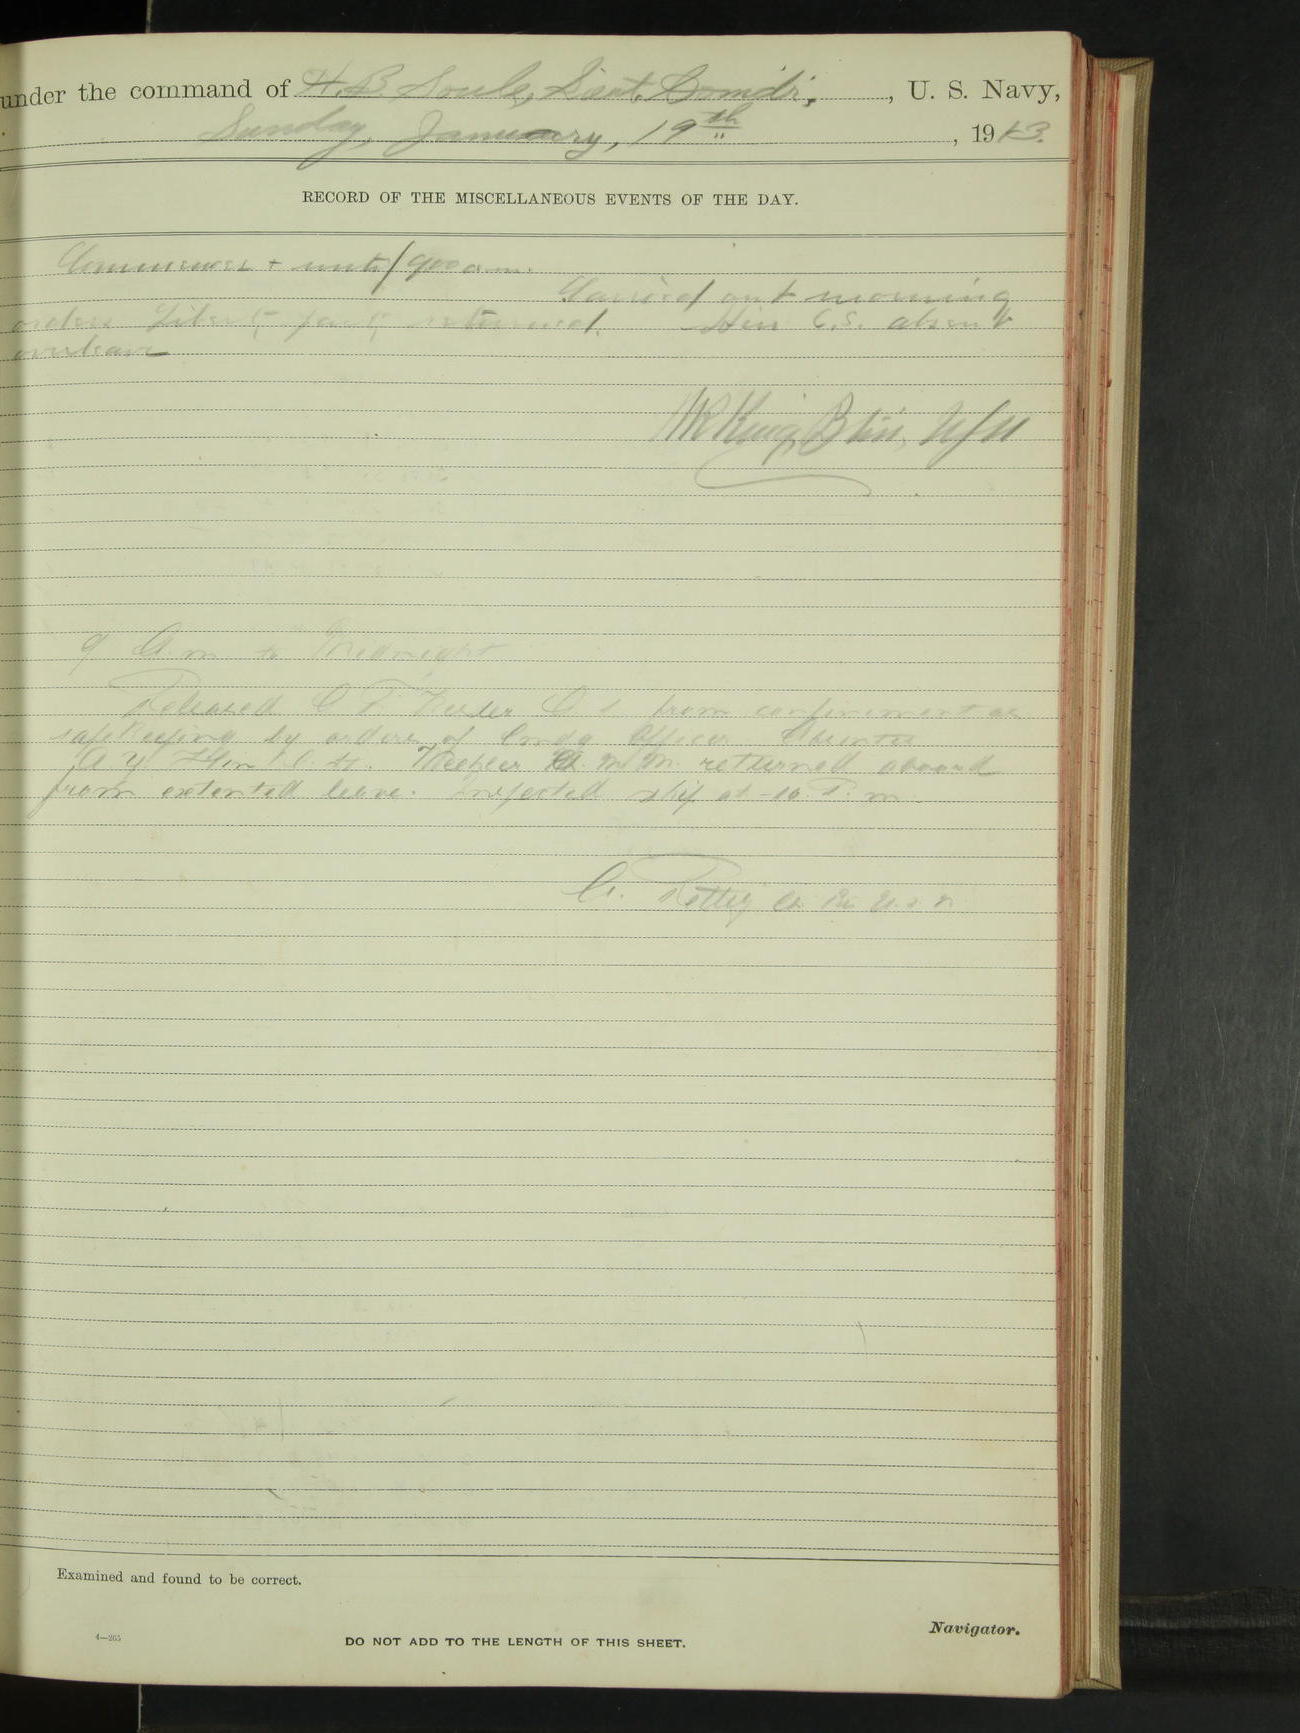 under the command of H. B. Soule, Lieut. Comdr., U. S. Navy,
Sunday, January, 19th, 1913.
RECORD OF THE MISCELLANEOUS EVENTS OF THE DAY.
Commences + until 9 00 a.m.
Carried out morning
orders Liberty party returned. Hin C.S. absent
overleave
King, Btsn, USN
9 A.m. to Midnight
Released C F O. S. from confinement as
safekeeping by orders of Comdg Officer.
A. Y. Hin M.M. returned aboard
from extented leave. Inspected ship at 10. P. m.
C. U. S. N
Examined and found to be correct.
Navigator.
4—265
DO NOT ADD TO THE LENGTH OF THIS SHEET.